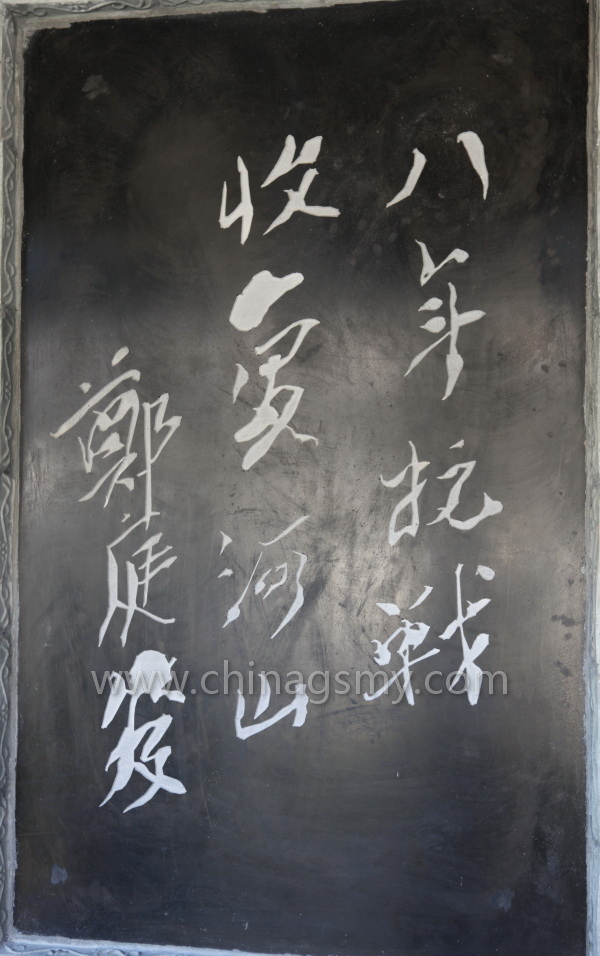 八年抗戰
收复河山
鄭庭笈
www.chinagsmy.com